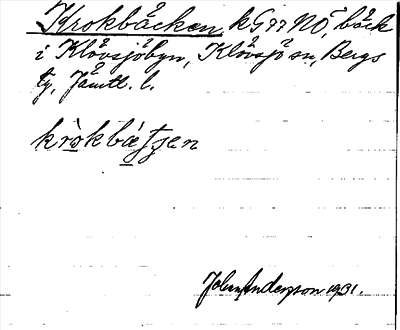 Krokbäcken, kG77NÖ, bäck
i Klövsjöbyn, Klövsjö sn, Bergs
tg, Jämtl. l.
kròkbætʃen
John Anderson 1931.